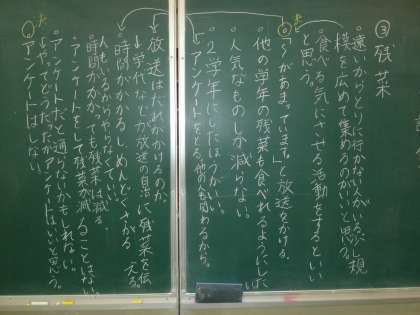 ③ 残菜
・遠いからとりに行かない人がいる、規
模を広めて集めるのがいいと思う。
・食べる気にさせる活動をするといい
と思う。
「〇〇があまっています」と放送をかける。
・他の学年の残菜も食べれるようにしたい
・人気なものしか減らない。
・2学年にしたほうがいい。
アンケートをとる。他の人も
・放送はだれがかけるのか、
学代など
・時間がかかるし、めんどくさがる
人もいるからやらなくて
・時間がかかっても残菜は減る。
アンケートをしても残菜が減ることはない
・アンケートだと通らないかもしれない。
・やってどうだったかアンケートはいいと思う。
アンケートはしない。